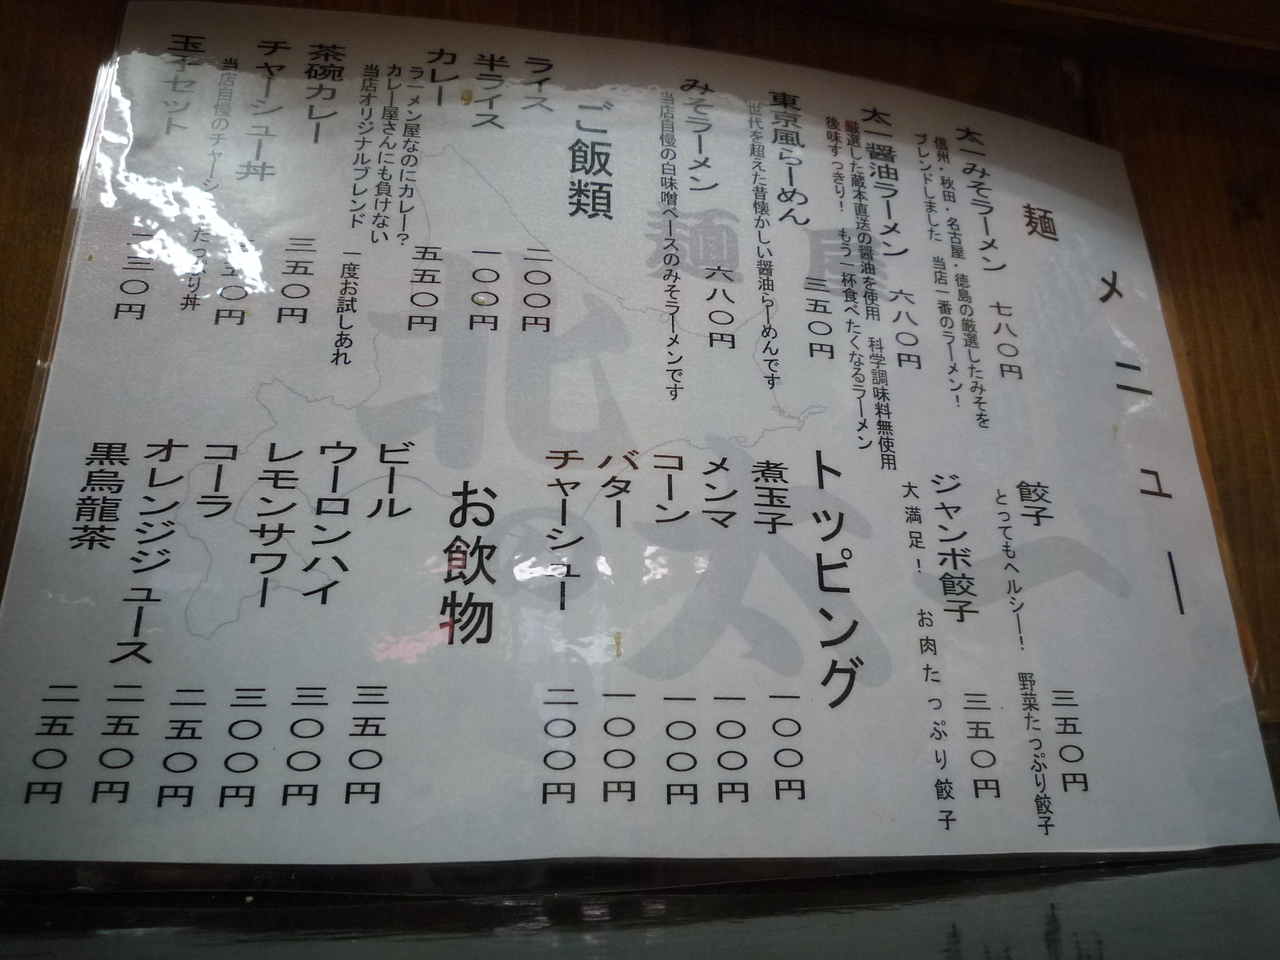 メニュー
麺
太一みそラーメン 七八〇円
信州・秋田・名古屋・徳島の厳選したみそを
ブレンドしました 当店一番のラーメン!
太一醤油ラーメン 六八〇円
厳選した蔵本直送の醤油を使用 科学調味料無使用
後味すっきり! もう一杯食べたくなるラーメン
東京風らーめん 三五〇円
世代を超えた昔懐かしい醤油らーめんです
みそラーメン 六八〇円
当店自慢の白味噌ベースのみそラーメンです
ご飯類
ライス 二〇〇円
半ライス 一〇〇円
カレー 五五〇円
ラーメン屋なのにカレー?
カレー屋さんにも負けない
当店オリジナルブレンド 一度お試しあれ
茶碗カレー 三五〇円
チャーシュー丼 五〇円
当店自慢のチャーシ たっぷり丼
玉子セット 三〇円
餃子 三五〇円
とってもヘルシー! 野菜たっぷり餃子
ジャンボ餃子 三五〇円
大満足! お肉たっぷり餃子
トッピング
煮玉子 一〇〇円
メンマ 一〇〇円
コーン 一〇〇円
バター 一〇〇円
チャーシュー 二〇〇円
お飲物
ビール 三五〇円
ウーロンハイ 三〇〇円
レモンサワー 三〇〇円
コーラ 二五〇円
オレンジジュース 二五〇円
黒烏龍茶 二五〇円